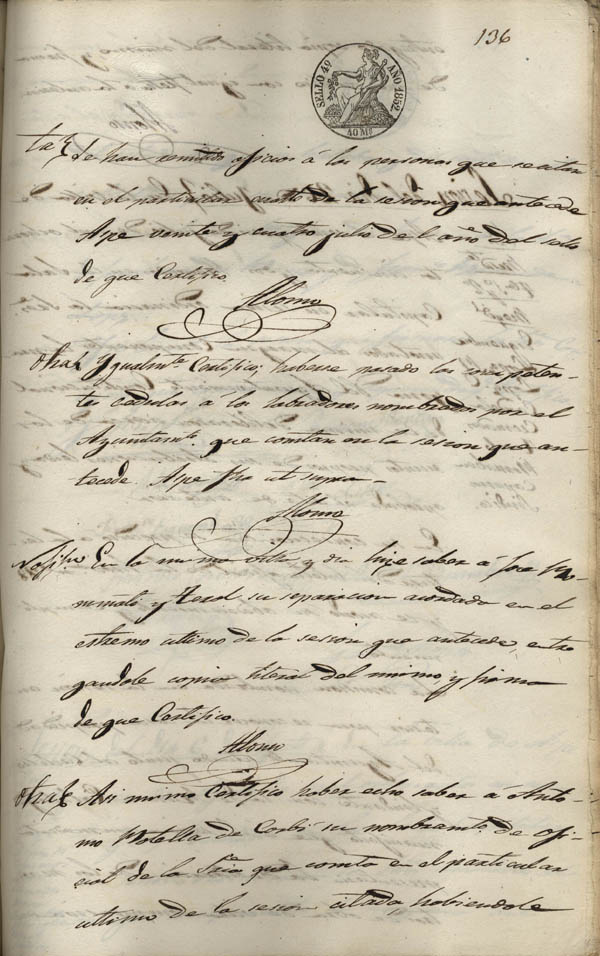 136
SELLO 4º AÑO 1852
40 Ms
Se han remitido oficios á las personas que se citan
en el particular cuarto de la sesion que antecede
Aspe veinte y cuatro julio del año del sello
de que Certifico.
Alonso
Otra. Ygualmte Certifico; haberse pasado las competen-
tes cedulas á los labradores nombrados por el
Ayuntamto que constan en la sesion que an-
tecede. Aspe fha ut supra=
Alonso
En la misma villa y dia hice saber a Jose
y Terol su separacion acordada en el
estremo ultimo de la sesion que antecede, entre
gandole copia literal del mismo, y firma
de que Certifico.
Alonso
Otra. Asi mismo Certifico haber echo saber á Anto-
nio Botella de Corbi su nombramto de ofi-
cial de la Sria que consta en el particular
ultimo de la sesion citada, habiendole